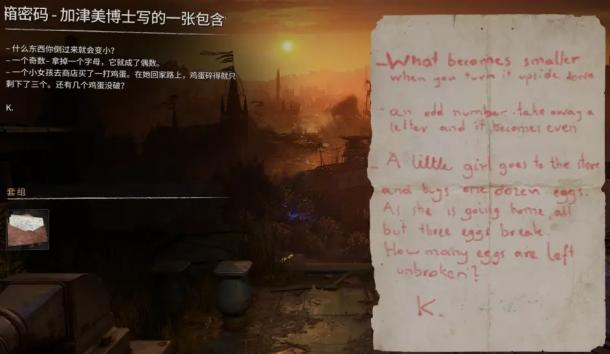 箱密码 - 加津美博士写的一张包含
- 什么东西你倒过来就会变小?
- 一个奇数- 拿掉一个字母,它就成了偶数。
- 一个小女孩去商店买了一打鸡蛋。在她回家路上,鸡蛋碎得就只
剩下了三个。还有几个鸡蛋没破?
K.
套组
- What becomes smaller
when you turn it upside down
- an odd number. take away a
letter and it becomes even
- A little girl goes to the store
and buys one dozen eggs.
As she is going home, all
but three eggs break.
How many eggs are left
unbroken?
K.